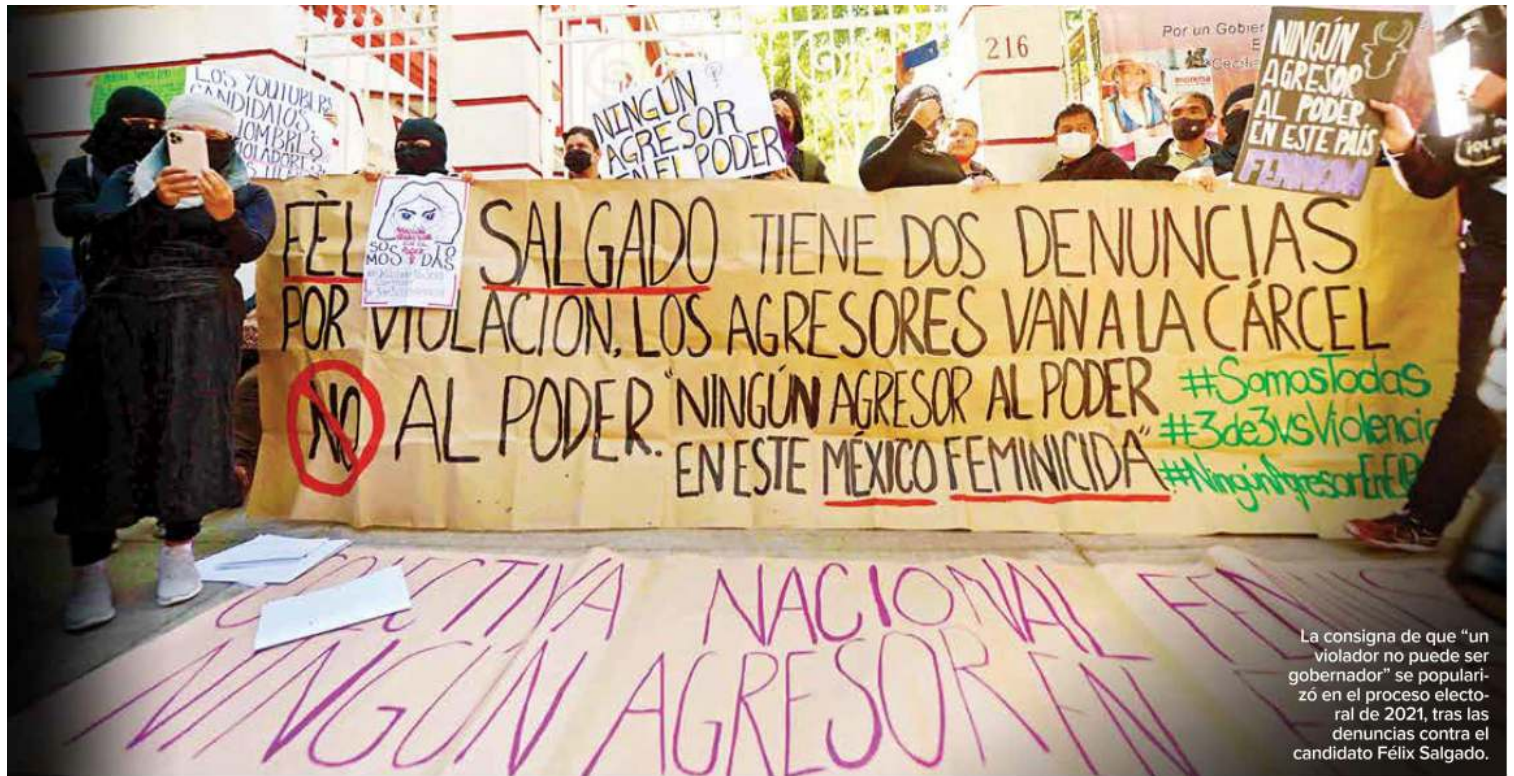 216
Por un Gobier
LOS YOUTUBERS
CANDIDATOS
HOMBRES
VIOLADORES
NINGÚN
AGRESOR
EN EL PODER
NINGÚN
AGRESOR
AL PODER
EN ESTE PAÍS
FEMINICIDA
FÈL SALGADO TIENE DOS DENUNCIAS
POR VIOLACIÓN, LOS AGRESORES VAN A LA CÁRCEL
NO AL PODER. "NINGÚN AGRESOR AL PODER
EN ESTE MÉXICO FEMINICIDA"
SOS TO
MOS DAS
#SomosTodas
#3de3vsViolencia
#NingúnAgresorEnElP
COLECTIVA NACIONAL FEMINIS
NINGÚN AGRESOR EN
La consigna de que “un
violador no puede ser
gobernador” se populari-
zó en el proceso electo-
ral de 2021, tras las
denuncias contra el
candidato Félix Salgado.